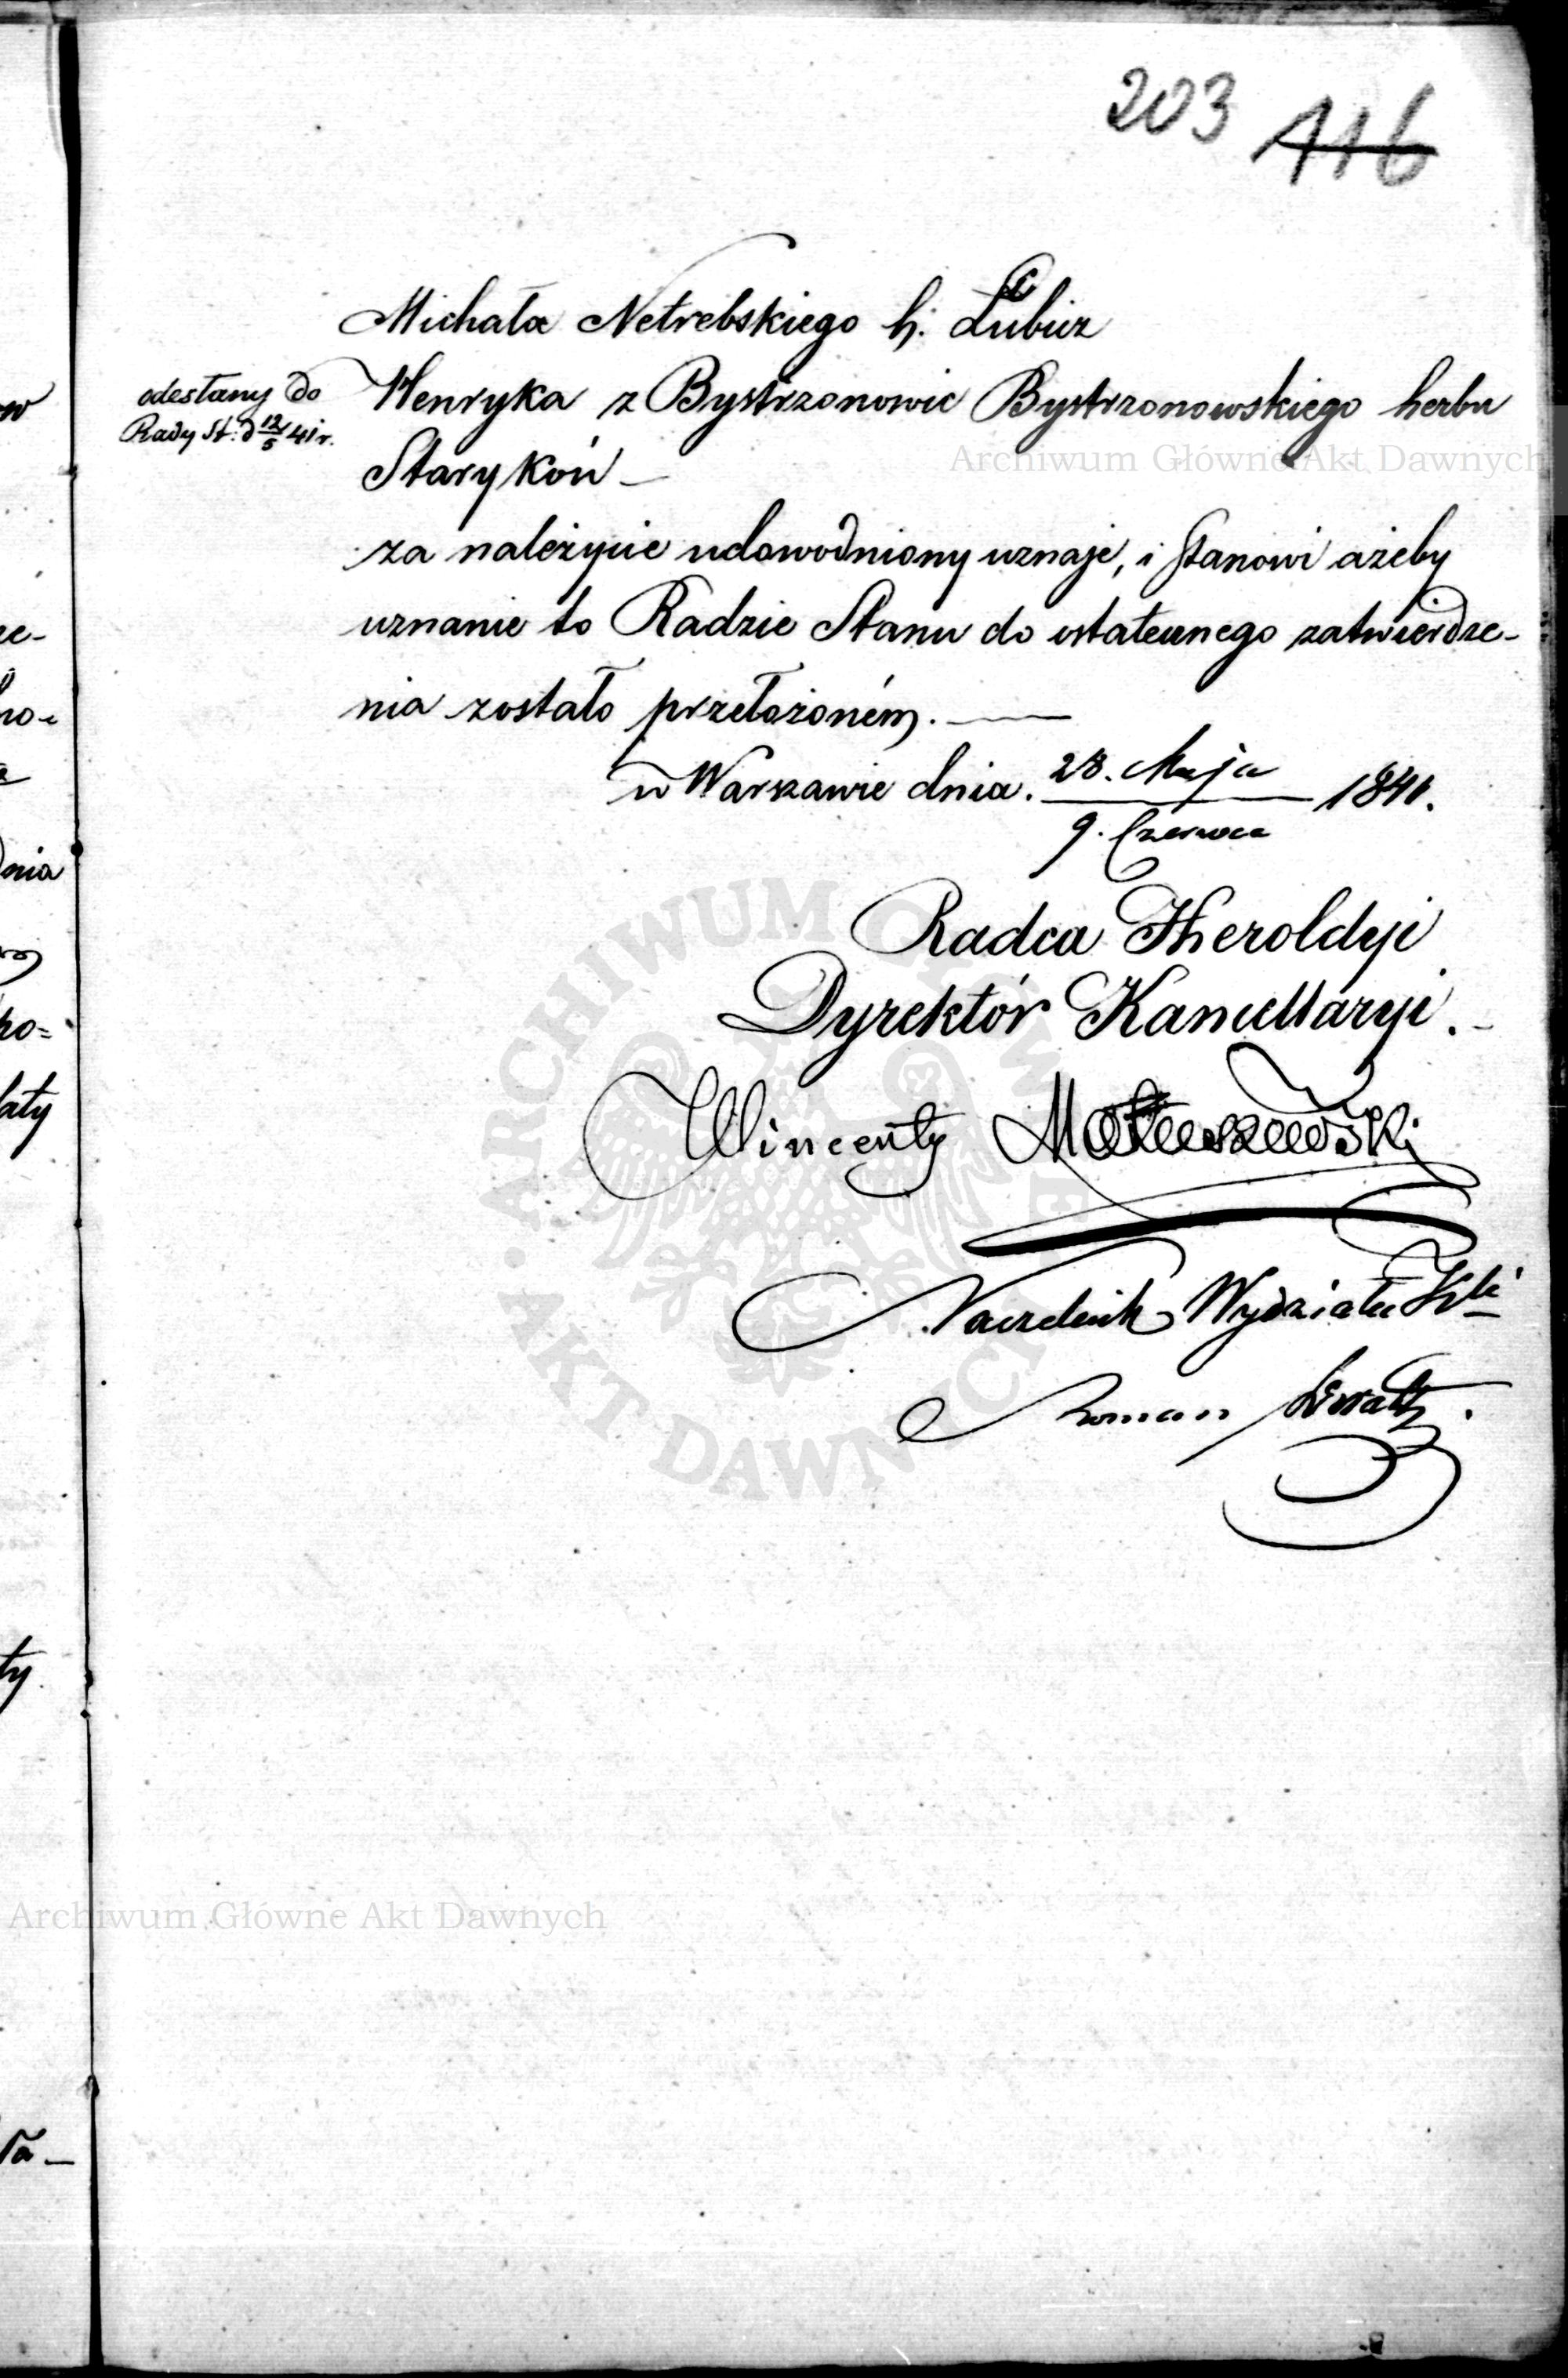 203 116
Michała Netrebskiego h. Lubicz
odesłany do
Rady St: d 12/5 41 r.
Henryka z Bystrzonowic Bystrzonowskiego herbu
Starykoń —
za należycie udowodniony uznaje, i stanowi ażeby
uznanie to Radzie Stanu do ostatecznego zatwierdze-
nia zostało przełożoném. —
w Warszawie dnia. 28. Maja / 9. Czerwca 1841.
Radca Heroldyi
Dyrektór Kancellaryi. -
Wincenty Matuszewski
Naczelnik Wydziału
Roman
Archiwum Główne Akt Dawnych
ARCHIWUM GŁÓWNE AKT DAWNYCH
Archiwum Główne Akt Dawnych
dnia